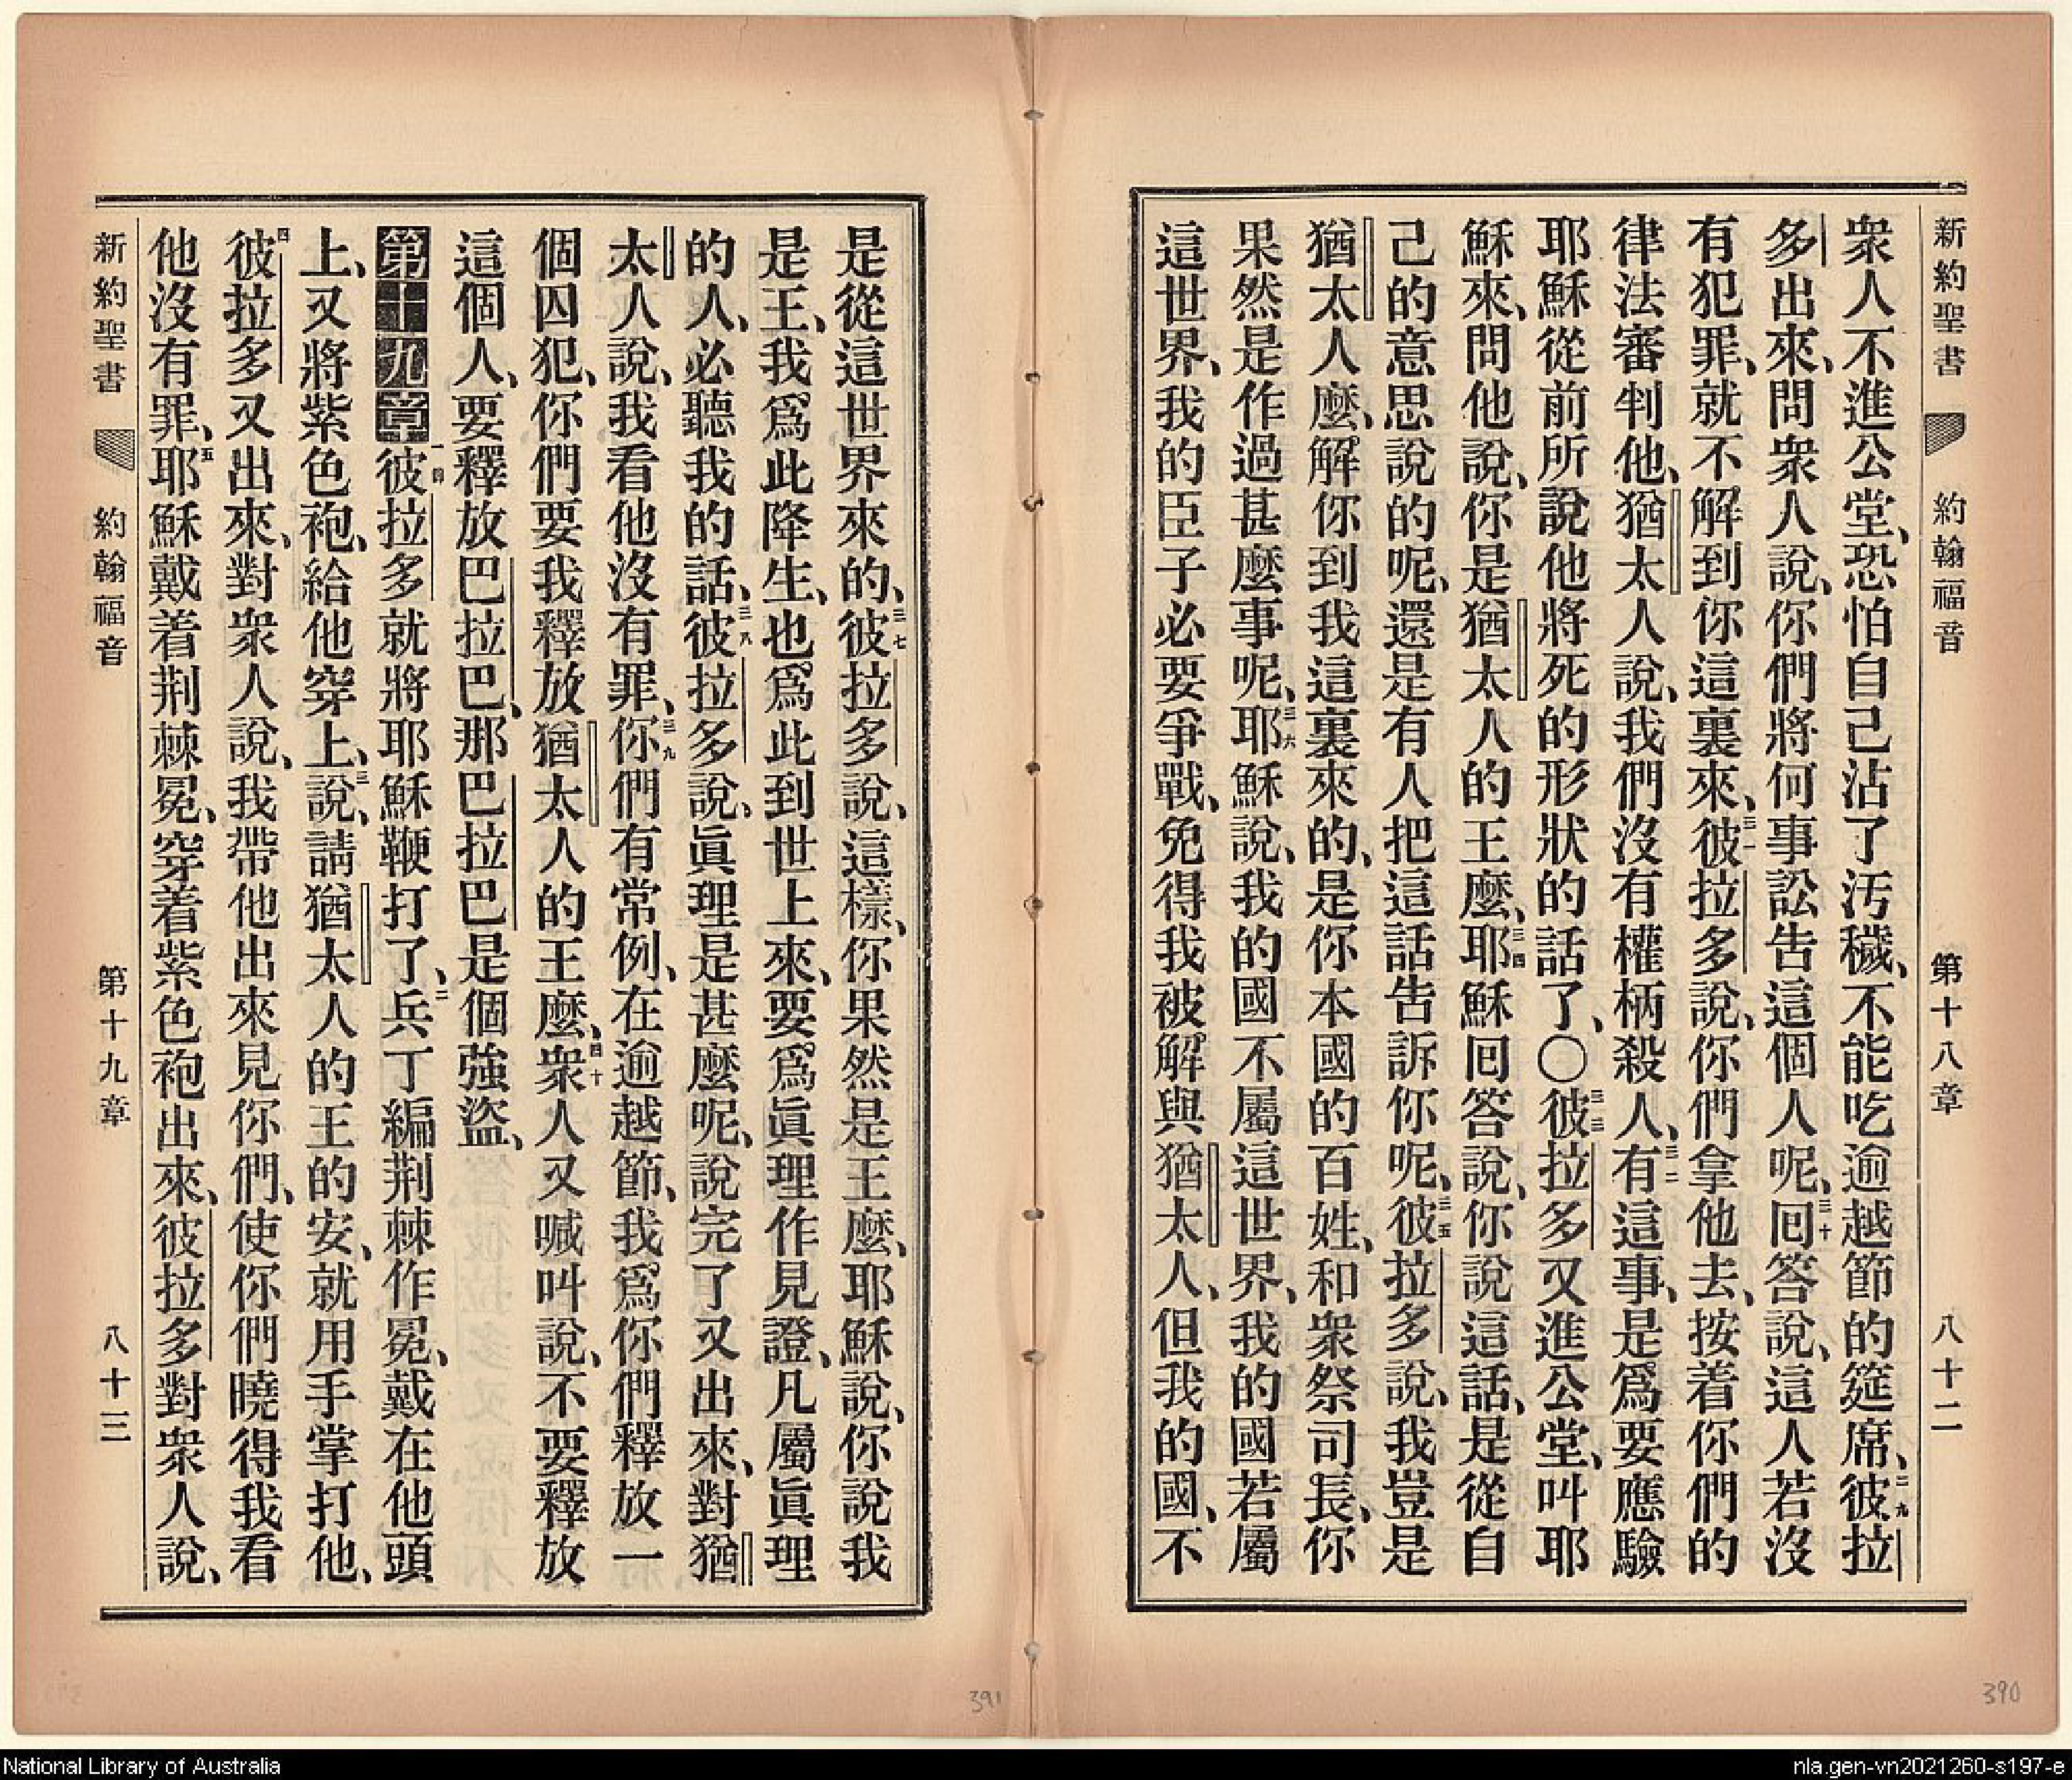 新約聖書 約翰福音 第十八章 八十二
衆人不進公堂、恐怕自己沾了汚穢、不能吃逾越節的筵席、二九彼拉
多出來、問衆人說、你們將何事訟告這個人呢、三十囘答說、這人若沒
有犯罪、就不解到你這裏來、三一彼拉多說、你們拿他去、按着你們的
律法審判他、猶太人說、我們沒有權柄殺人、三二有這事、是爲要應驗
耶穌從前所說他將死的形狀的話了、〇三三彼拉多又進公堂、叫耶
穌來、問他說、你是猶太人的王麼、三四耶穌囘答說、你說這話、是從自
己的意思說的呢、還是有人把這話告訴你呢、三五彼拉多說、我豈是
猶太人麼、解你到我這裏來的、是你本國的百姓、和衆祭司長、你
果然是作過甚麼事呢、三六耶穌說、我的國不屬這世界、我的國若屬
這世界、我的臣子必要爭戰、免得我被解與猶太人、但我的國、不
是從這世界來的、三七彼拉多說、這樣、你果然是王麼、耶穌說、你說我
是王、我爲此降生、也爲此到世上來、要爲眞理作見證、凡屬眞理
的人、必聽我的話、三八彼拉多說、眞理是甚麼呢、說完了又出來、對猶
太人說、我看他沒有罪、三九你們有常例、在逾越節、我爲你們釋放一
個囚犯、你們要我釋放猶太人的王麼、四十衆人又喊叫說、不要釋放
這個人、要釋放巴拉巴、那巴拉巴是個強盜、
第十九章 一彼拉多就將耶穌鞭打了、二兵丁編荆棘作冕、戴在他頭
上、又將紫色袍、給他穿上、三說、請猶太人的王的安、就用手掌打他、
四彼拉多又出來、對衆人說、我帶他出來見你們、使你們曉得我看
他沒有罪、五耶穌戴着荆棘冕、穿着紫色袍出來、彼拉多對衆人說、
新約聖書 約翰福音 第十九章 八十三
391
390
National Library of Australia
nla.gen-vn2021260-s197-e